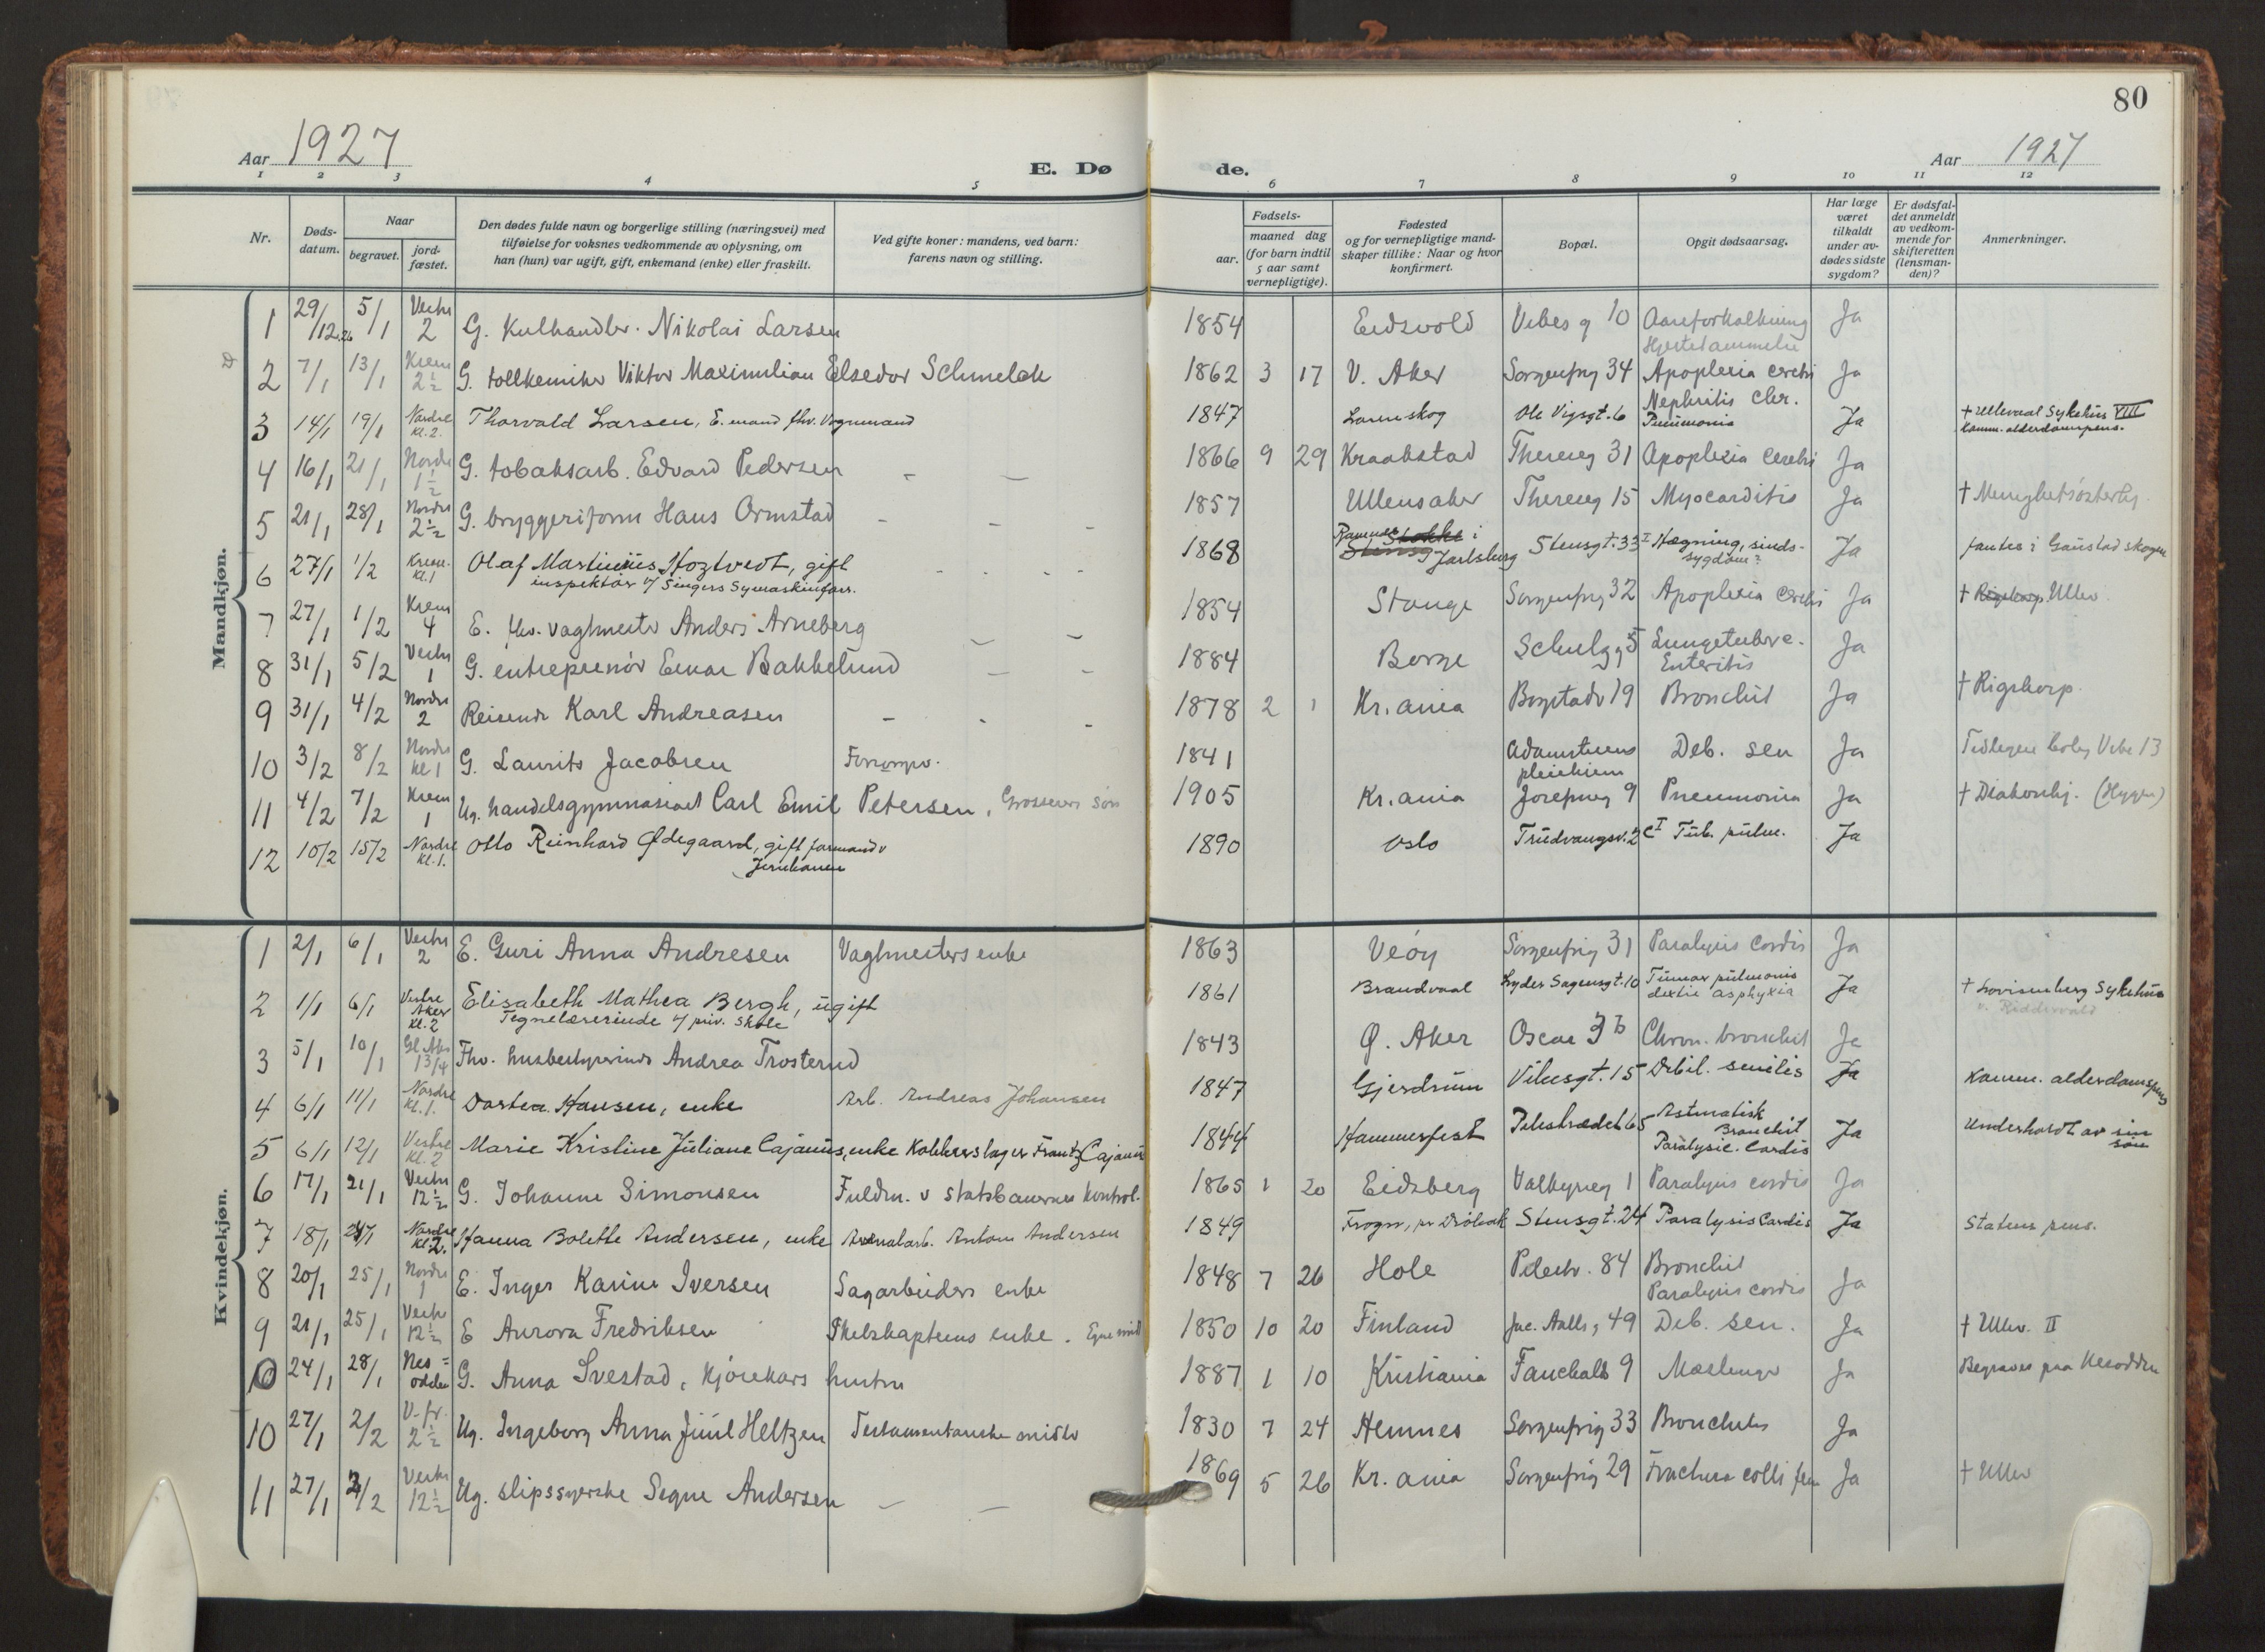 80
Aar 1927
E. Dø
de.
Aar 1927
1 2 3 4 5 6 7 8 9 10 11 12
Nr.
Døds-datum.
Naar
begravet.
jord-fæstet.
Den dødes fulde navn og borgerlige stilling (næringsvei) med
tilføielse for voksnes vedkommende av oplysning, om
han (hun) var ugift, gift, enkemand (enke) eller fraskilt.
Ved gifte koner: mandens, ved barn:
farens navn og stilling.
Fødsels-
aar.
maaned dag
(for barn indtil
5 aar samt
vernepligtige).
Fødested
og for vernepligtige mand-
skaper tillike: Naar og hvor
konfirmert.
Bopæl.
Opgit dødsaarsag.
Har læge
været
tilkaldt
under av-
dødes sidste
sygdom?
Er dødsfal-
det anmeldt
av vedkom-
mende for
skifteretten
(lensman-
den)?
Anmerkninger.
Mandkjøn.
1 29/12.26 5/1 Vestre 2 G. Kulhandler. Nikolai Larsen 1854 Eidsvold Vibes g 10 Aareforkalkning Ja
2 7/1 13/1 Krem 2½ G. tollkemiker Viktor Maximilian Elsedor Schmelck 1862 3 17 V. Aker Sorgenfrig 34 Apoplexia cerebri Ja
3 14/1 19/1 Nordre kl. 2. Thorvald Larsen, E. mand fhv. Vognmand 1847 Lørenskog Ole Vigsgt. 6 Nephritis chr. Pneumonia Ja † Ullevaal Sykehus VIII
Komm. alderdomspens.
4 16/1 21/1 Nordre 1½ G. tobaksarb. Edvard Pedersen - - 1866 9 29 Kraakstad Thereseg 31 Apoplexia cerebri Ja
5 21/1 28/1 Nordre 2½ G. bryggeriform Hans Ormstad - - - 1857 Ullensaker Thereseg 15 Myocarditis Ja
6 27/1 1/2 Krem. kl. 1 Olaf Martinius Hoztvedt, gift
inspektør v/ Singers Symaskinforr. 1868 Ramnes Stokke i Jarlsberg Stensgt. 33 I Hægning, sinds-
sygdom? Ja fantes i Gaustadskogen
7 27/1 1/2 Krem 4 E. fhv. vagtmester Anders Arneberg 1854 Stange Sorgenfrig 32 Apoplexia cerebri Ja † Rigshosp Ullev.
8 31/1 5/2 Vestre 1 G. entreprenör Einar Bakkelund 1884 Borge Schulzg 5 Lungetuberc.
Enteritis Ja
9 31/1 4/2 Nordre 2 Reisende Karl Andreasen - - - 1878 2 1 Kr.ania Bogstadv 19 Bronchit Ja † Rigshosp.
10 3/2 8/2 Nordre kl 1 G. Laurits Jacobsen Forsorgsv. 1841 Adamstuens
pleiehjem Deb. sen Ja Tidligere bolig Vibe 13
11 4/2 7/2 Krem 1 Ug. handelsgymnasiast Carl Emil Petersen, Grosserers sön 1905 Kr.ania Josefineg 9 Pneumonia Ja † Diakonhj. (Hygen)
12 10/2 15/2 Nordre kl. 1. Otto Reinhard Ødegaard, gift formand v
Jernbanen 1890 Oslo Trudvangsv. 2 c I Tub. pulm. Ja
Kvindekjøn.
1 2/1 6/1 Vestre 2 E. Guri Anna Andresen Vagtmesters enke 1863 Veöy Sorgenfrig 31 Paralysis cordis Ja
2 1/1 6/1 Vestre Aker kl. 2 Elisabeth Mathea Bergh, ugift
Tegnelærerinde v/ priv. skole 1861 Brandvaal Lyder Sagensgt. 10 Tumor pulmonis
dextri asphyxia Ja † Lovisenberg Sykehus
v. Riddervold
3 5/1 10/1 Gl. Aker 13/4 Fhv. husbestyrerinde Andrea Trosterud 1843 Ø. Aker Oscar 3 b Chron. bronchit Ja
4 6/1 11/1 Nordre kl. 1. Dortea Hansen, enke Arb. Andreas Johansen 1847 Gjerdrum Vibesgt. 15 Debil. senilis Ja Komm. alderdomspens
5 6/1 12/1 Vestre kl. 2 Marie Kristine Juliane Cajanus, enke Kobberslager Frantz Cajanus 1844 Hammerfest Pilestrædet 65 Astmatisk
Bronchit
Paralysis. Cordis Ja Underholdt av sin
søn
6 17/1 21/1 Vestre 12½ G. Johanne Simonsen Fuldm. v statsbanernes kontrol. 1865 1 20 Eidsberg Valkyrieg 1 Paralysis cordis Ja
7 18/1 24/1 Nordre kl 2. Hanna Bolette Andersen, enke Arsenalarb. Anton Andersen 1849 Frogn, pr Drøbak Stensgt. 24 Paralysis Cordis Ja Statens pens.
8 20/1 25/1 Nordre 1 E. Inger Karine Iversen Sagarbeiders enke 1848 7 26 Hole Pilestr. 84 Bronchit
Paralysis cordis Ja
9 21/1 25/1 Vestre 12½ E Aurora Fredriksen Skibskapteins enke. Egne mid 1850 10 20 Finland Jac. Aalls g 49 Deb. sen. Ja † Ullev. II
10 24/1 28/1 Nes=
odden G. Anna Svestad, kjörekars hustru 1887 1 10 Kristiania Fauchalds 9 Mæslinger Ja Begraves paa Nesodden
10 27/1 2/2 V. fr. 2½ Ug. Ingeborg Anna Juul Heltzen Testamentariske midler 1830 7 24 Hemnes Sorgenfrig 33 Bronchitis Ja
11 27/1 2/2 Vestre 12½ Ug. slipssyerske Signe Andersen - - 1869 5 26 Kr. ania Sorgenfrig 29 Fractura colli fem Ja † Ullev